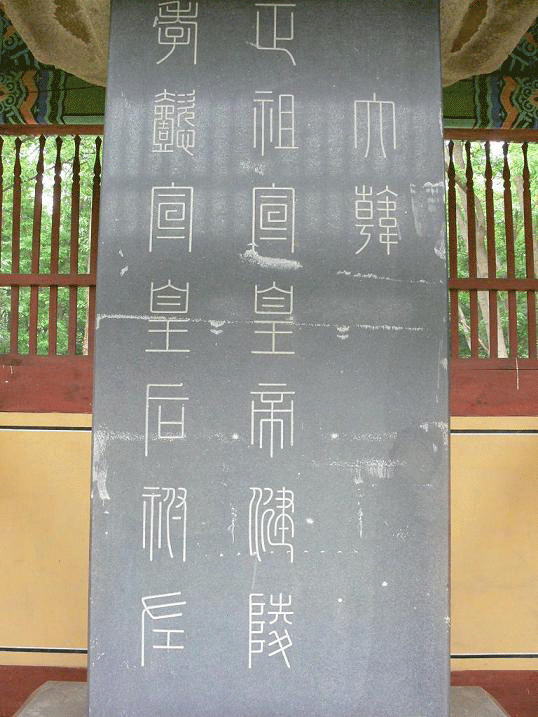 大韓
正祖宣皇帝健陵
孝懿宣皇后祔左